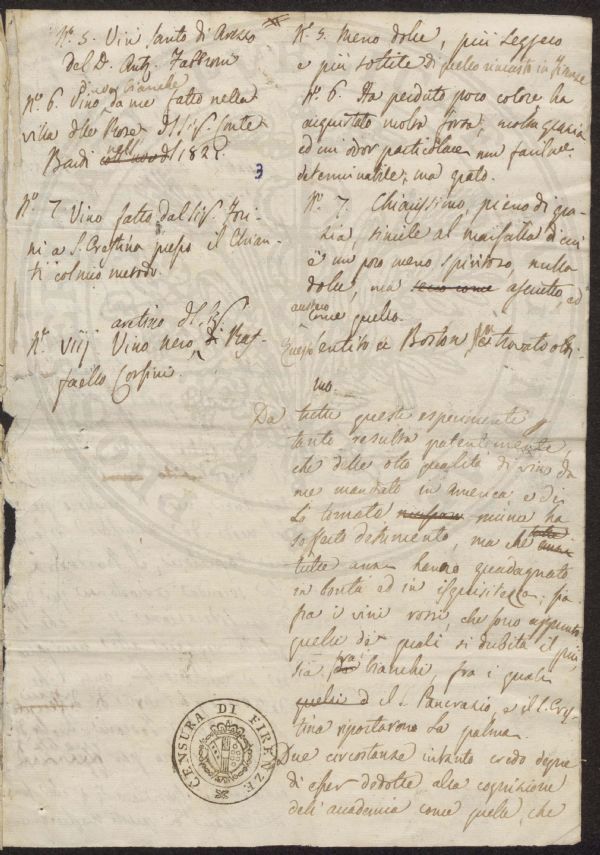 N.º 5. Vin Santo di Arezzo
del D. Ant. Fabbroni
N.º 6. Vino bianche
da me fatto nella
villa delle Rose del Sig. Conte
Bardi nell 182
3
N.º 7 Vino fatto dal Sig. Tori-
ni a S. Crestina presso il Chian-
ti col mio metodo.
N.º viij Vino nero
antico del Sig.
Raf-
faello Corsini.
N.º 5. Meno dolce, più leggero
e più sottile di quello rimasto in Firenze
N.º 6. Ha perduto poco colore ha
acquistato molta forza, molta grazia
ed un odor particolare non facilme.
determinabile, ma grato.
N.º 7. Chiarissimo, pieno di gra-
zia, simile al marsalla di cui
è un poco meno spiritoso, nulla
dolce, ma asciutto, ed
austero
come quello.
Questo entiro a Boston trovato otti-
mo.
Da tutte queste esperimente
tanto resulta patentemente,
che delle otto qualità di vino da
me mandate in America, e di
là tornate niuna ha
sofferto detrimento, ma che
tutte anzi hanno guadagnato
in bontà ed in isquisitezza; sia
fra i vini rossi, che sono appunto
quelli de quali si dubita il più,
sia tra bianchi, fra i quali
quelli di il S. Pancrazio, e il S. Cres-
tina riportarono la palma.
Due circostanze intanto credo degne
di esser dedotte alla cognizione
dell'accademia come quelle, che
CENSURA DI FIRENZE